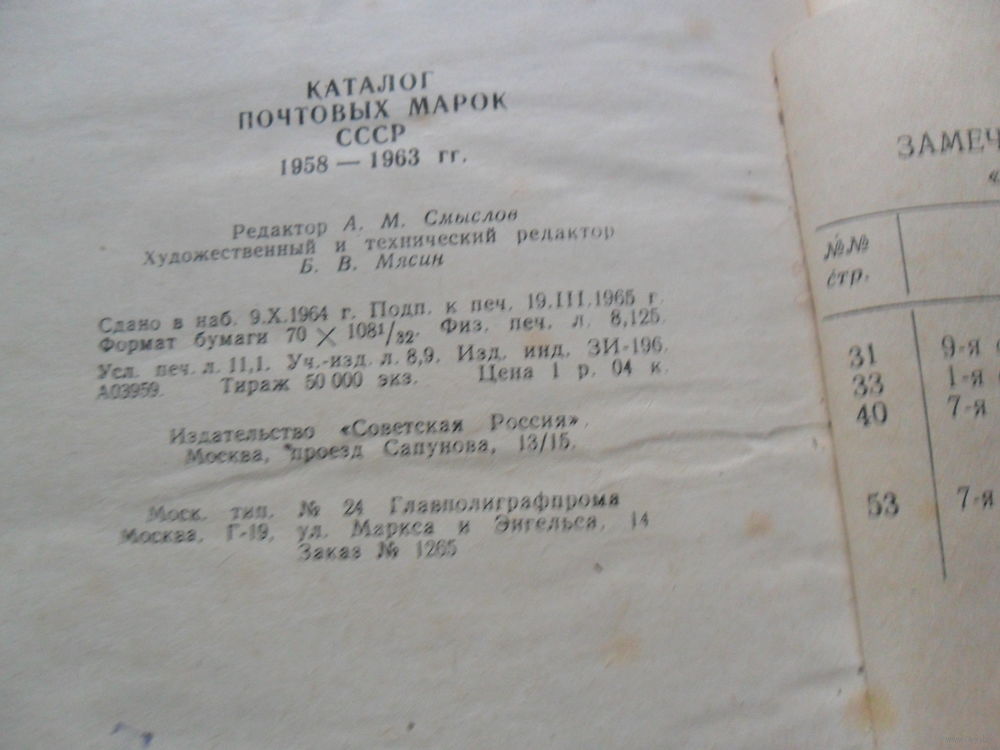 КАТАЛОГ
ПОЧТОВЫХ МАРОК
СССР
1958 — 1963 гг.
Редактор А. М. Смыслов
Художественный и технический редактор
Б. В. Мясин
Сдано в наб. 9.X.1964 г. Подп. к печ. 19.III.1965 г.
Формат бумаги 70 × 108¹/₃₂. Физ. печ. л. 8,125.
Усл. печ. л. 11,1. Уч.-изд. л. 8,9. Изд. инд. ЗИ-196.
А03959. Тираж 50 000 экз. Цена 1 р. 04 к.
Издательство «Советская Россия».
Москва, проезд Сапунова, 13/15.
Моск. тип. № 24 Главполиграфпрома
Москва, Г-19, ул. Маркса и Энгельса, 14
Заказ № 1265
ЗАМЕЧ
№№
стр.
31 9-я
33 1-я
40 7-я
53 7-я